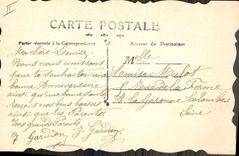 II
CARTE POSTALE
Partie réservée à la Correspondance
Adresse du Destinataire
Ma chère Louise
Nous nous unissons
pour te souhaiter un
bonne Anniversaire
ainsi qu'une
nous tous
ainsi que les Parents
Grands Parents
Gardion S. Gardion
Melle
Louise Mulot
8 Rue de la Ferme
La Garenne Colombes
Seine